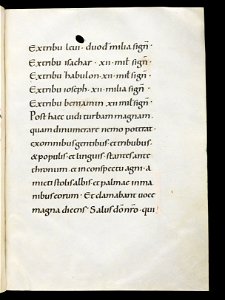 Ex tribu leui · duod̄ milia sign̄ ·
Ex tribu isachar · xii · mil̄ sign̄ ·
Ex tribu habulon · xii · mil̄ sign̄ ·
Ex tribu ioseph · xii · milia sign̄ ·
Ex tribu beniamin · xii mil̄ sign̄ ·
Post haec uidi turbam magnam ·
quam dinumerare nemo poterat ·
ex omnibus gentibus et tribubus ·
& populis et linguis · stantes ante
thronum · et in conspectu agni · a
micti stolis albis · et palmae in ma
nibus eorum · Et clamabant uoce
magna dicens · Salus dō nr̄o · qui